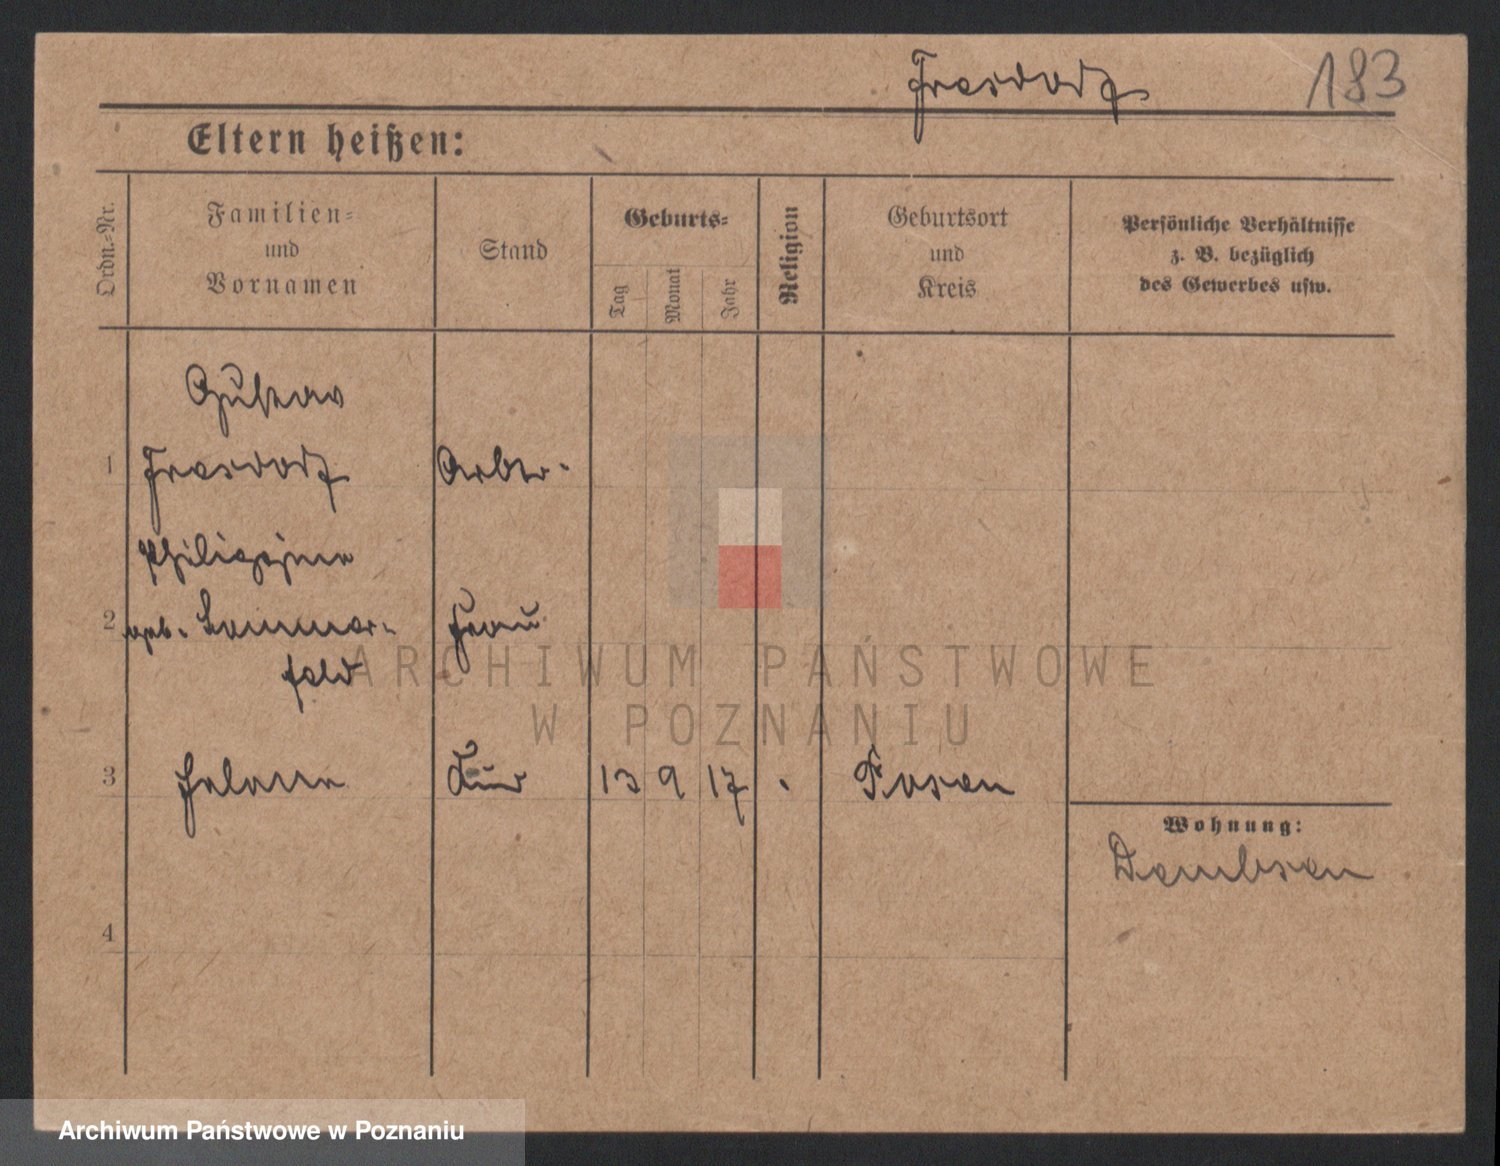 Fresdorf 183
Eltern heißen:
Ordn.-Nr.
Familien-
und
Vornamen
Stand
Geburts-
Tag
Monat
Jahr
Religion
Geburtsort
und
Kreis
Persönliche Verhältnisse
z. B. bezüglich
des Gewerbes usw.
Gustav
1 Fresdorf Arbtr.
Philippine
2 geb. Sommer- Frau
feld
3 Helene Kind 13 9 17 Posen
Wohnung:
Dembsen
4
ARCHIWUM PAŃSTWOWE
W POZNANIU
Archiwum Państwowe w Poznaniu